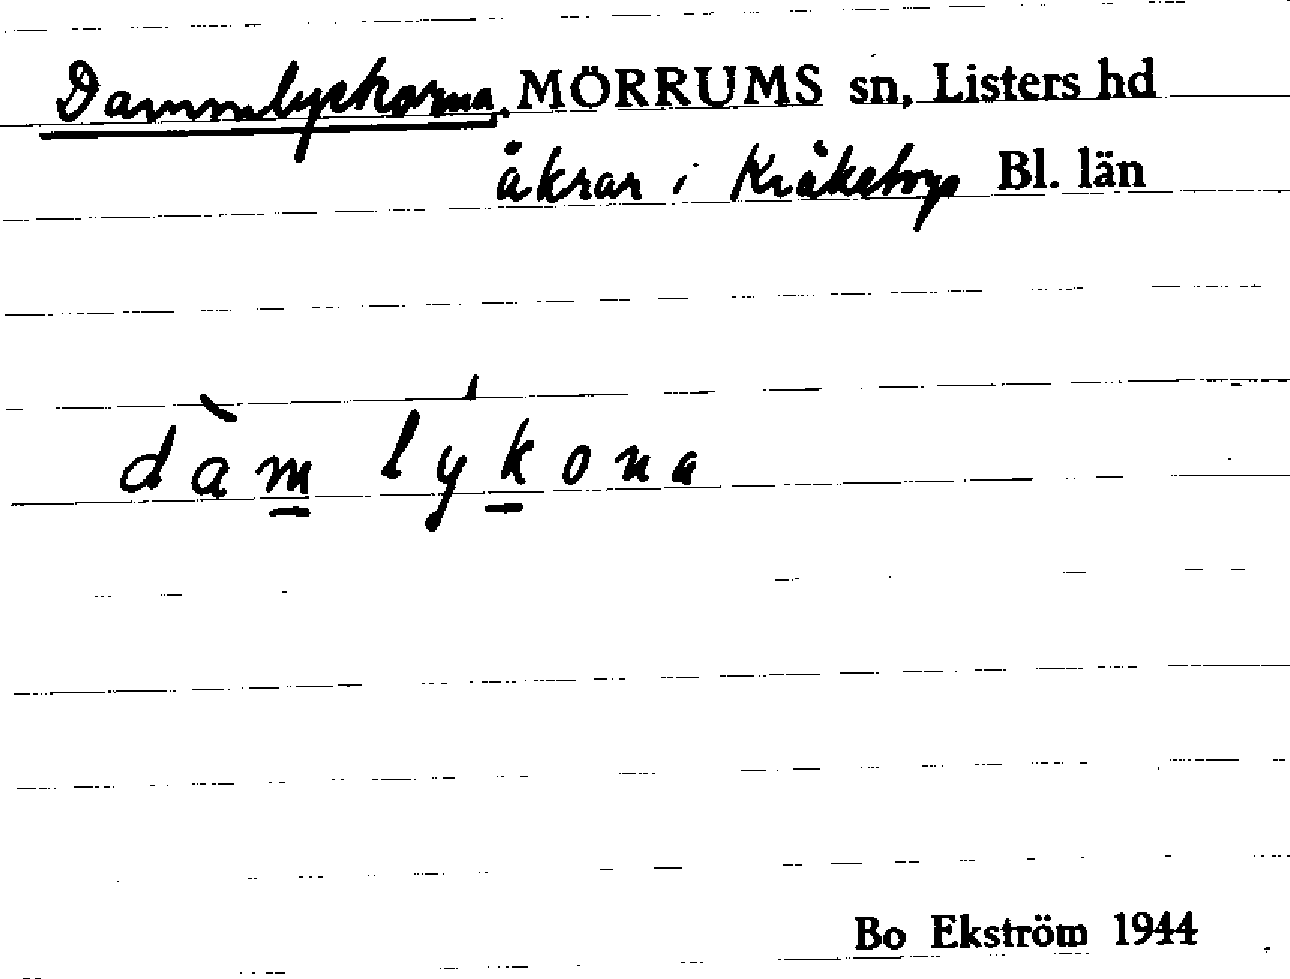 Dammlyckorna, MÖRRUMS sn, Listers hd
åkrar i Kråketorp Bl. län
dàm lýkona
Bo Ekström 1944